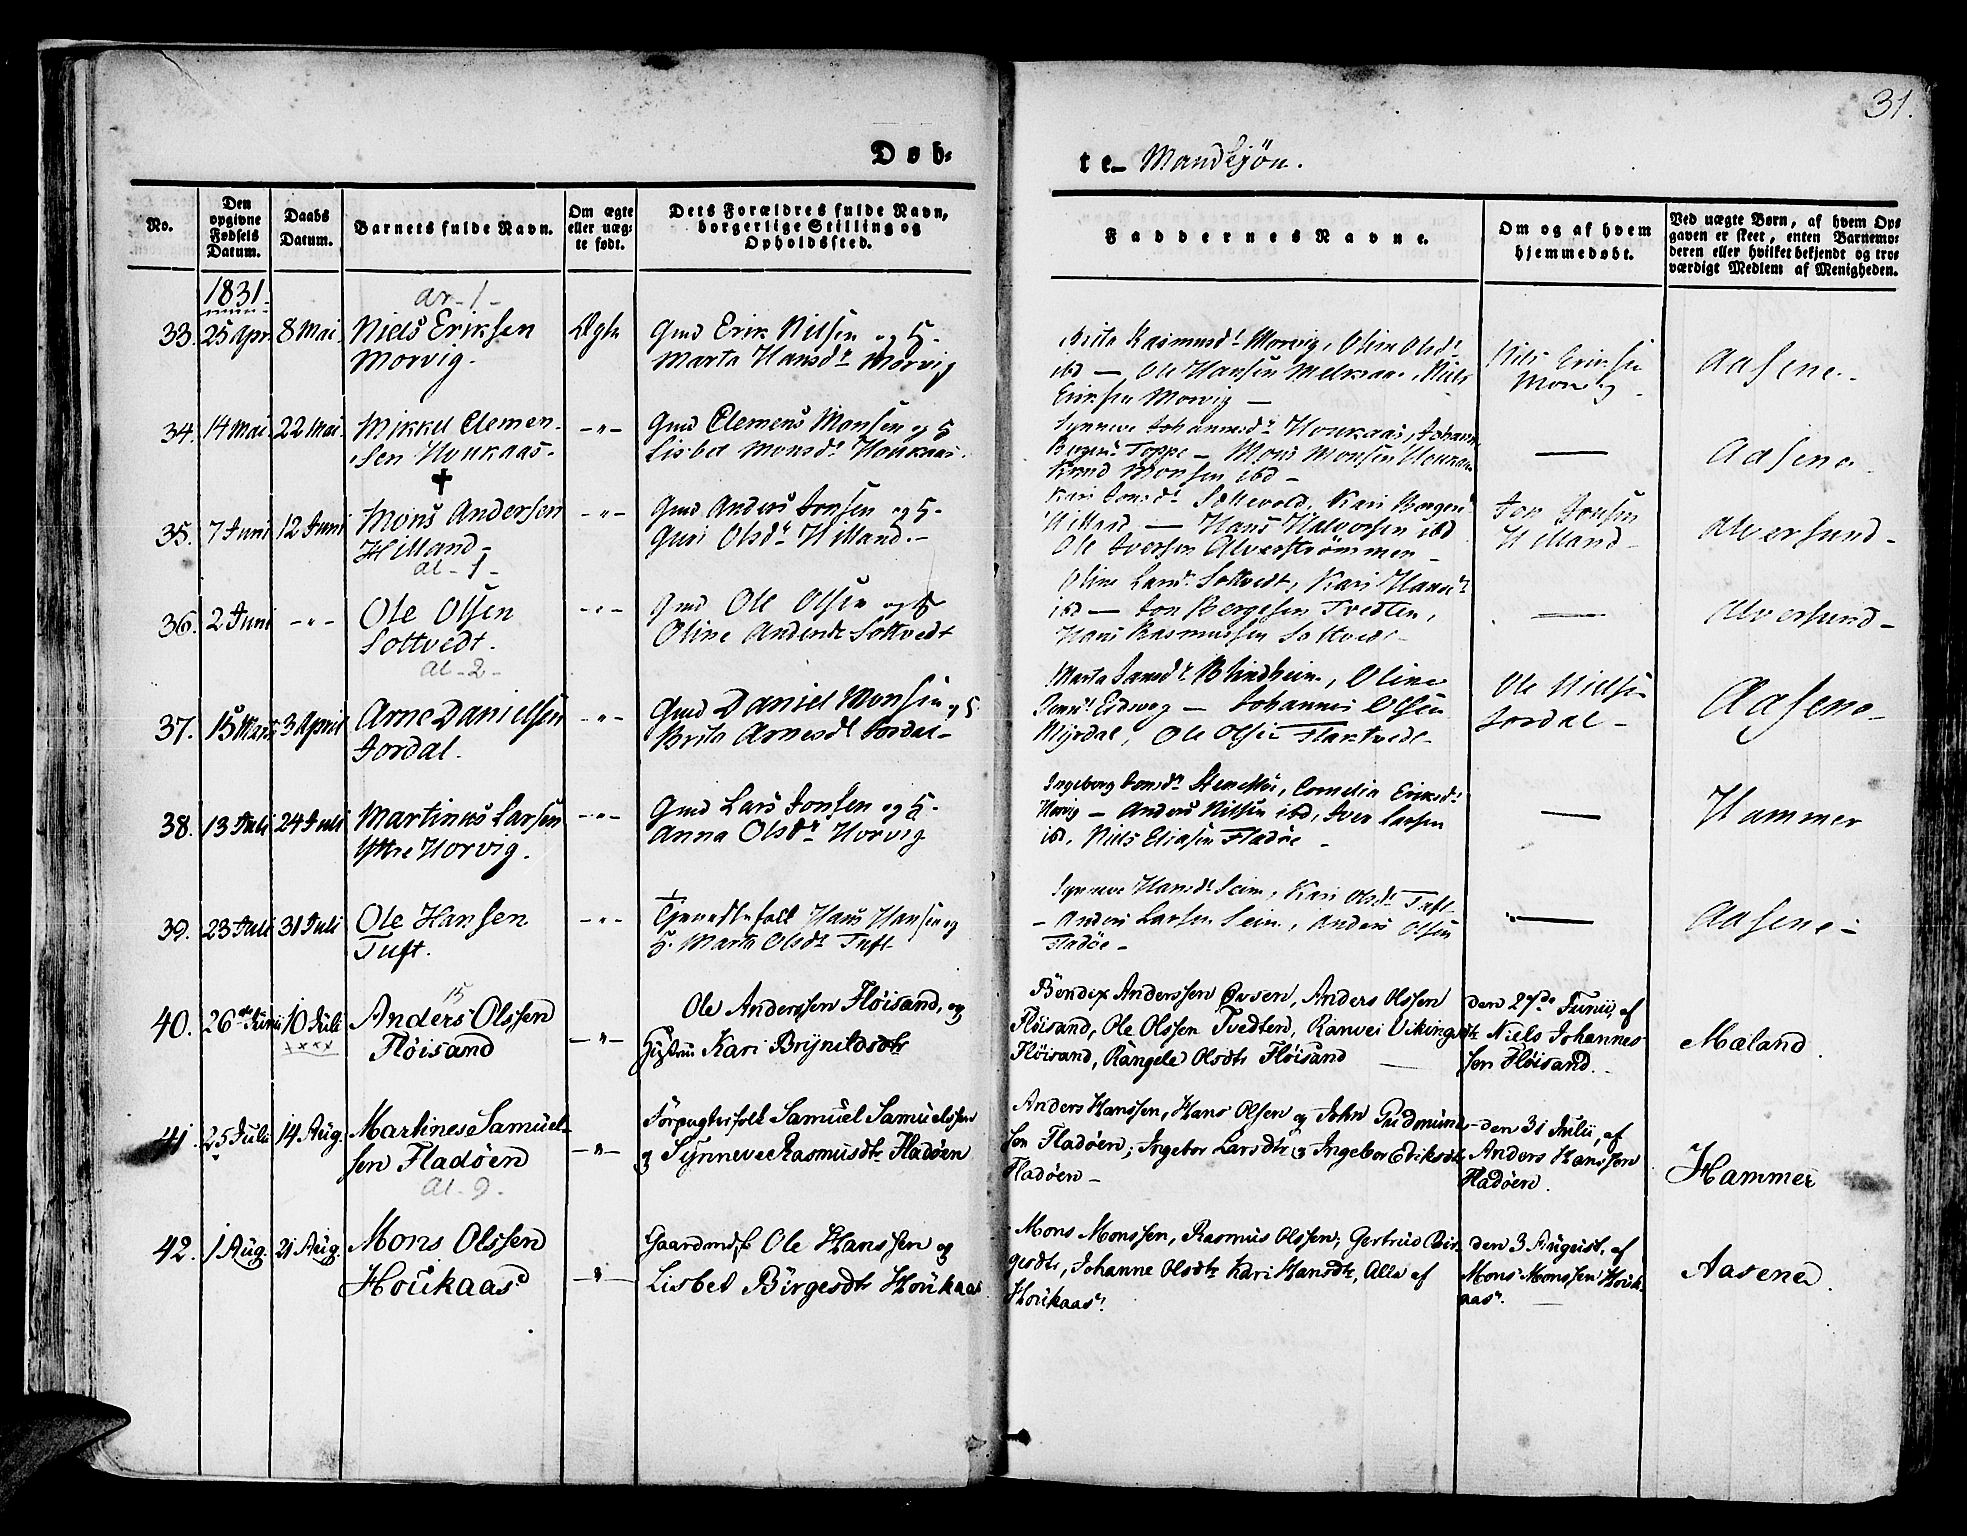 31.
Døb-
te - Mandkjøn.
No.
Den opgivne Fødsels Datum.
Daabs Datum.
Barnets fulde Navn.
Om ægte eller uægte født.
Dets Forældres fulde Navn, borgerlige Stilling og Opholdssted.
Faddernes Navne.
Om og af hvem hjemmedøbt.
Ved uægte Børn, af hvem Opgaven er skeet, enten Barnemoderen eller hvilket bekjendt og troværdigt Medlem af Menigheden.
1831.
33. 25 Apr. 8 Mai. Niels Eriksen Ægte Gmd Erik Nilsen og H.
Morvig. Marta Hansdr Morvig
Brita Rasmusdr Morvig, Oline Olsdr
ibd — Ole Hansen Melkaas, Niels
Eriksen Morvig —
Nils Eriksen
Morvig
Aasene.
34. 14 Mai. 22 Mai. Mikkel Clemen- —"— Gmd Clemens Monsen og H
sen Houkaas. Lisbet Monsdr Houkaas.
Synneve Johannesdr Houkaas, Johanne
Toppe — Mons Monsen Houkaas
Knud Monsen ibd —
—
Aasene.
✝
35. 7 Juni 12 Juni Mons Andersen —"— Gmd Anders Jonsen og H.
Hilland — Guri Olsdr Hilland.
Kari Jonsdr Kari
Hilland — Hans Halvorsen ibd
Ole Iversen Alverstrømmen —
Jon Jonsen
Hilland —
Alversund —
al - 1 -
36. 2 Juni —"— Ole Olsen —"— Gmd Ole Olsen og H
Soltvedt. Oline Andersdr Soltvedt
Oline Larsdr Soltvedt, Kari Hansdr
ibd — Jon Bergesen Tvedten,
Hans Rasmussen Soltvedt
—
Alversund —
al - 2 -
37. 15 Marts 3 April Arne Danielsen —"— Gmd Daniel Monsen og H
Jordal. Brita Arnesdr Jordal —
Marta Blindheim, Oline
— Johannes Olsen
Myrdal, Ole Olsen Flaktvedt
Ole Nilsen
Jordal —
Aasene
38. 13 Juli 24 Juli Martinus Larsen —"— Gmd Lars Jonsen og H.
Ytre Horvig. Anna Olsdr Horvig
Ingeborg Jonsdr Cornelia Eriksdr
Horvig — Anders Nilsen ibd, Iver Larsen
ibd, Niels Eliasen Fladøe —
—
Hammer
39. 23 Juli 31 Juli Ole Hansen —"— Tjenestefolk Hans Hansen og
Tuft. H. Marta Olsdr Tuft
Synneve Hansdr Seim, Kari Olsdr Tuft
— Anders Larsen Seim, Anders Olsen
Fladøe —
—
Aasene —
15
40. 26de Junii 10 Juli Anders Olssen —"— Ole Anderssen Fløisand, og
Fløisand Hustru Kari Brynildsdtr
Bendix Anderssen Øvsen, Anders Olssen
Fløisand, Ole Olssen Tvedten, Ranvei Vikingsdtr
Fløisand, Rangele Olsdtr Fløisand —
den 27de Junii, af
Niels Johannes-
sen Fløisand.
Mæland.
41. 25 Julii 14 Aug. Martines Samuel- —"— Forpagterfolk Samuel Samuelssen
sen Fladøen og Synneve Rasmusdtr Fladøen
Anders Hanssen, Hans Olsen og John Gudmund-
sen Fladøen; Ingebor Larsdtr og Ingebor Eriksdtr
Fladøen —
den 31 Julii, af
Anders Hanssen
Fladøen.
Hammer
al - 9.
42. 1 Aug. 21 Aug. Mons Olssen —"— Gaardmdsf Ole Hanssen og
Houkaas Lisbet Birgesdtr Houkaas
Mons Monssen, Rasmus Olssen, Gertrud Bir-
gesdtr, Johanne Olsdtr Kari Hansdtr, Alle af
Houkaas.
den 3 August, af
Mons Monssen Houk-
aas.
Aasene.